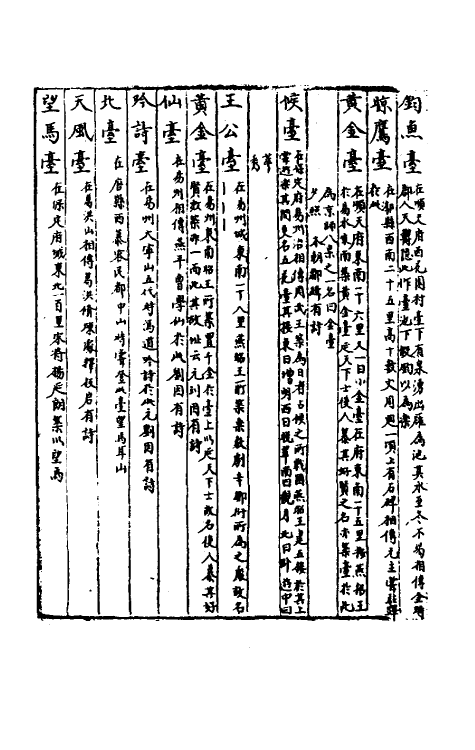 釣魚臺 在順天府西花園村臺下有泉湧出匯為池其水至冬不竭相傳金時
郡人王鬱隱此作臺池下假釣以為樂
晾鷹臺 在漷縣西南二十五里高十數丈周迴一頃上有石碑相傳元主常駐蹕
於此
黃金臺 在順天府東南一十六里又一曰小金臺在府東南一十五里按燕昭王
於易水東南築黃金臺延天下士後人慕其好賢之名亦築臺於此
為京師八景之一名曰金臺
夕照 本朝鄒緝有詩
候臺 在保定府易州治相傳周武王築為日者占候之所戰國燕昭王建五樓於其上
常遊樂其間更名五花臺其樓東曰 西曰 南曰觀月北曰 中曰
王公臺 在易州城東南一十八里燕昭王所築樂毅劇辛鄒衍所為之處故名
黃金臺 在易州東南昭王所築置千金於臺上以延天下士故名後人慕其好
賢故築亦一而此其故址云元劉因有詩
仙臺 在易州相傳燕平曹學仙於此劉因有詩
吟詩臺 在易州大寧山五代時馮道吟詩於此元劉因有詩
北臺 在唐縣西慕容氏都中山時嘗登此臺望馬耳山
天風臺 在易洪山相傳易洪 有詩
望馬臺 在保定府城東北一百里宋將楊延朗築以望馬